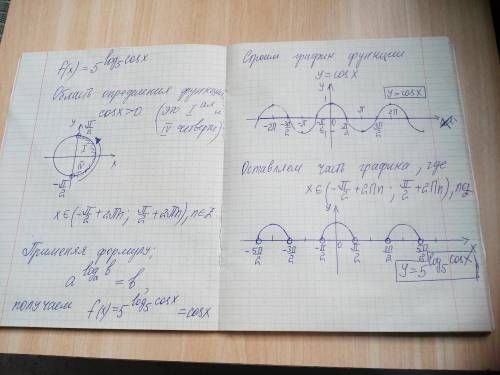 f(x) = 5^log₅cosx
Область определения функции
cosx>0 (это I ая и
IV четверти)
y
π/2
I
IV
x
-π/2
x∈(-π/2+2πn; π/2+2πn), n∈Z
Применяя формулу,
a^logₐb = b,
получаем f(x)=5^log₅cosx = cosx
Строим график функции
y=cosx
y
y=cosx
-2π -3π/2 -π -π/2 0 π/2 π 3π/2 2π
x
Оставляем часть графика, где
x∈(-π/2+2πn; π/2+2πn), n∈Z
y
x
-5π/2 -3π/2 -π/2 0 π/2 3π/2 5π/2
y=5^log₅cosx